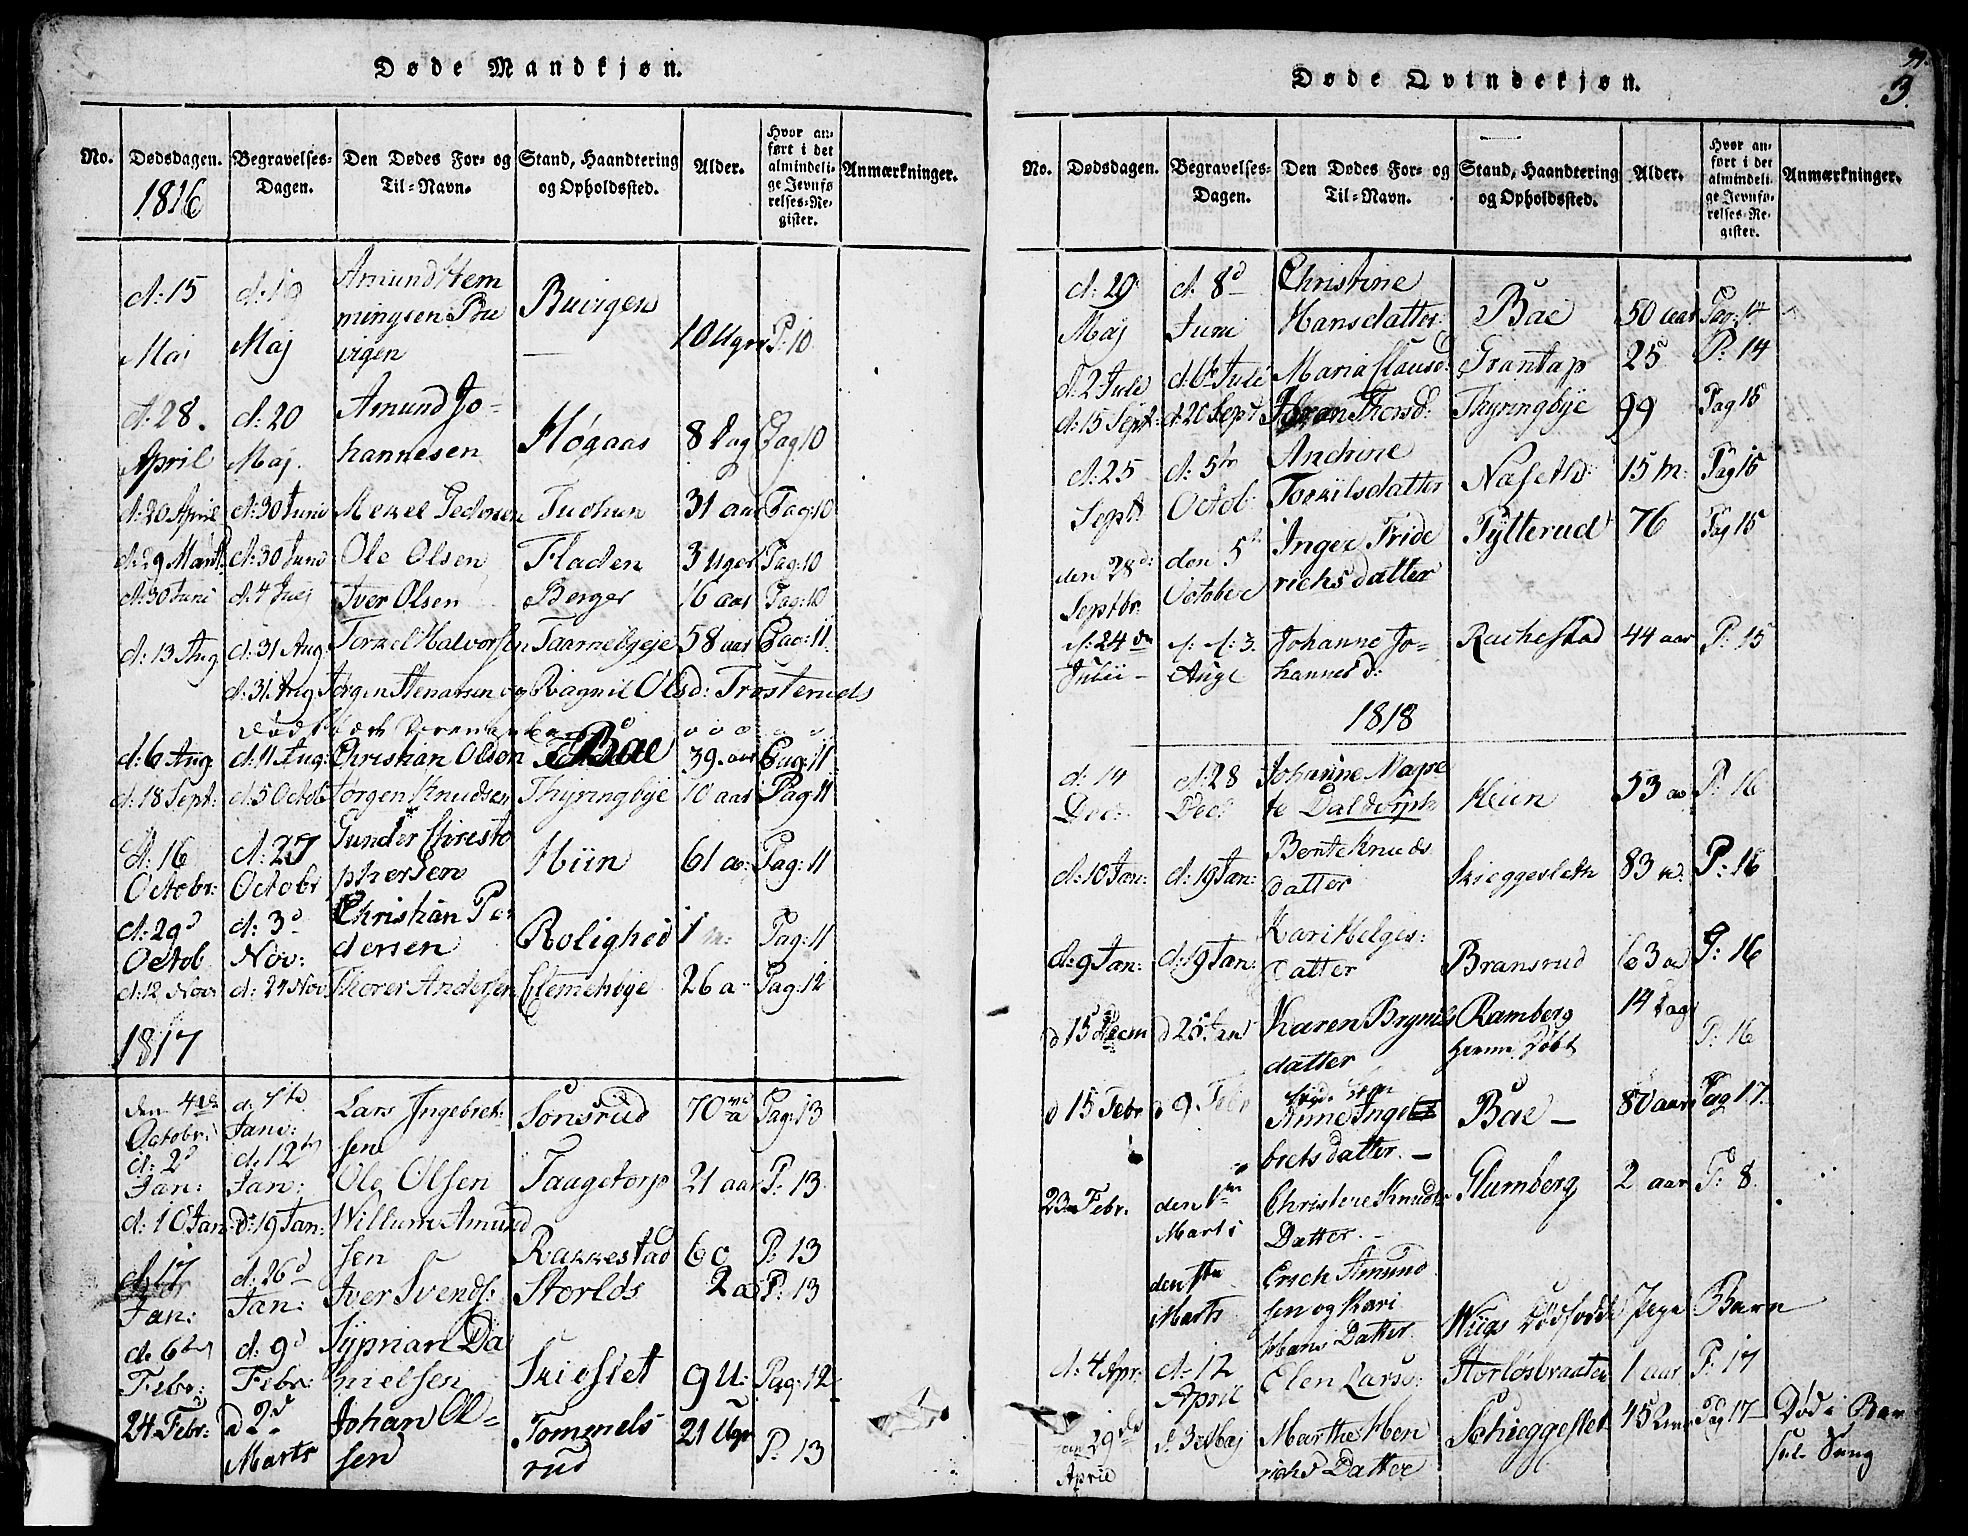 Døde Mandkjøn.
No. Dødsdagen. Begravelses-Dagen. Den Dødes For- og Til-Navn. Stand, Haandtering og Opholdssted. Alder. Hvor anført i det almindelige Jevnførelses-Register. Anmærkninger.
1816
d: 15 Maj d: 19 Maj Amund Hemmingsen Buvigen Buvigen 10 Uger P: 10
d: 28. April d: 20 Maj. Amund Johannesen Høgaas 8 Dag Pag: 10
d: 20 April d: 30 Juni Mekel Pedersen 31 aar Pag: 10
d: 29 Marts d: 30 Juni Ole Olsen Fladen 3 Uger Pag: 10
d: 30 Juni d: 4 Juli Iver Olsen Berger 16 aar Pag: 10
d: 13 Aug d: 31 Aug: Torkel Halvorsen Taarnebyeje 58 aar Pag: 11.
d: 31. Aug Jørgen Stenarsen og Ragnil Olsd: Trosteruds
d: 6 Aug: d: 11 Aug: Christian Olsen Bae 39. aar Pag: 11
d: 18 Sept: d: 5 Octob Jørgen Knudsen Thyringbye 10 aar Pag: 11
d: 16 Octobr: d: 27 Octobr Gunder Christophersen Hiin 61 aa: Pag: 11
d: 29d Octob d: 3d Nov: Christian Pedersen Rolighed 1 m: Pag: 11
d: 12 Nov: d: 24 Nov Thorer Andersen Clemehøye 26 a Pag: 12
1817
den 4de Octobr: d. 7td Janv: Lars Ingebretsen Sonsrud 70 a Pag: 13
d: 2d Jan: d: 12te Jan: Ole Olsen Taagetorp 21 aar P: 13
d: 10 Jan: D: 19 Jan: Willum Amundsen Rakkestad 60 P: 13
d. 17 Jan: d. 26d Jan: Iver Svends: Storlds 2 a P: 13
d. 6te Febr: d: 9d Febr: Syprian Danielsen Skieslet 9 U: Pag: 12
24 Febr: d 2d Marts Johan Olsen Tommelsrud 21 Ugr P: 13
Døde Qvindekjøn.
3.
No. Dødsdagen. Begravelses-Dagen. Den Dødes For- og Til-Navn. Stand, Haandtering og Opholdssted. Alder. Hvor anført i det almindelige Jevnførelses-Register. Anmærkninger.
d: 29 Maj d. 8d Juni Christine Hansdatter Bae 50 aar Pag: 14
d: 2 Juli d. 6te Juli Maria Clausd: Grantap 25 P: 14
d: 15 Sept: d: 20 Sept Joran Thorsd: Thyringbye 99 Pag 15
d: 25 Septb d: 5te Octob: Andrine Torkilsdatter Naseth: 15 m: Pag 15
den 28d: Septbr. den 5t October Inger Friderichsdatter Tytterud 76 Pag 15
d: 24de Julii d. 3. Aug Johanne Johannesd: Rachestad 44 aar P: 15
1818
d: 14 Dec: d: 28 Dec: Johanne Magrete Daldorph Heun 53 aa P: 16
d: 10 Jan: d: 19 Jan: Bente Knudsdatter Skieggesleth 83 a. P: 16
d: 9 Jan: d: 19 Jan: Kari Helgesdatter Bransrud 63 a P: 16
d 15 Decem d 25 Jan Karen Brynilsdatter Ramberg hieme Døbt 14 Dag P: 16
d 15 Febr d 9 Febr Anne Ingebretsdatter. Bae 80 aar Pag 17.
23 Febr. den 1ste Marts Christine Knudsdatter. Glumberg 2 aar P: 8.
den 1ste Marts Erich Amundsen og Kari Hans Datter Wiigs Dødfødt Pige Barn
d: 4 Apr: d: 12 April Elen Larsd: Storløsbraaten 1 aar P: 17
den 29de April d. 3 Maj Marthe Henrichs Datter Schieggeslet 45 aar Pag 17 Død i Barselseng